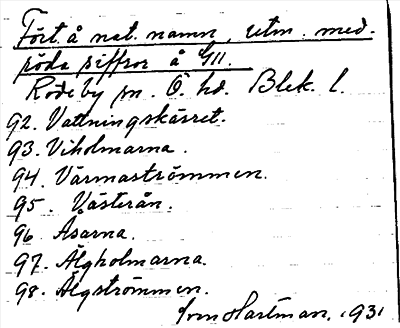 Fört. å nat. namn, utm. med.
röda siffror å G11.
Rödeby sn. Ö. hd. Blek. l.
92. Vattningskärret.
93. Viholmarna.
94. Värmaströmmen.
95. Västerån.
96. Åsarna.
97. Älgholmarna.
98. Älgströmmen.
Sven Hartman, 1931